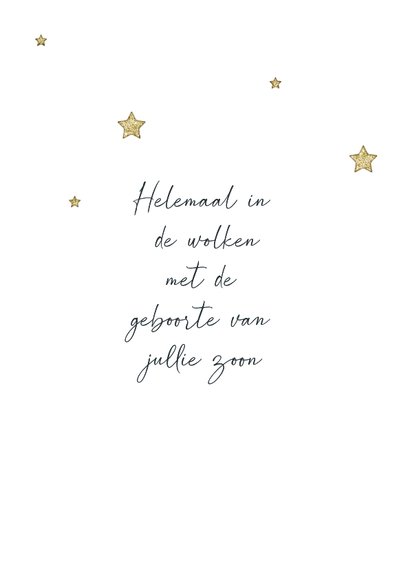 Helemaal in
de wolken
met de
geboorte van
jullie zoon